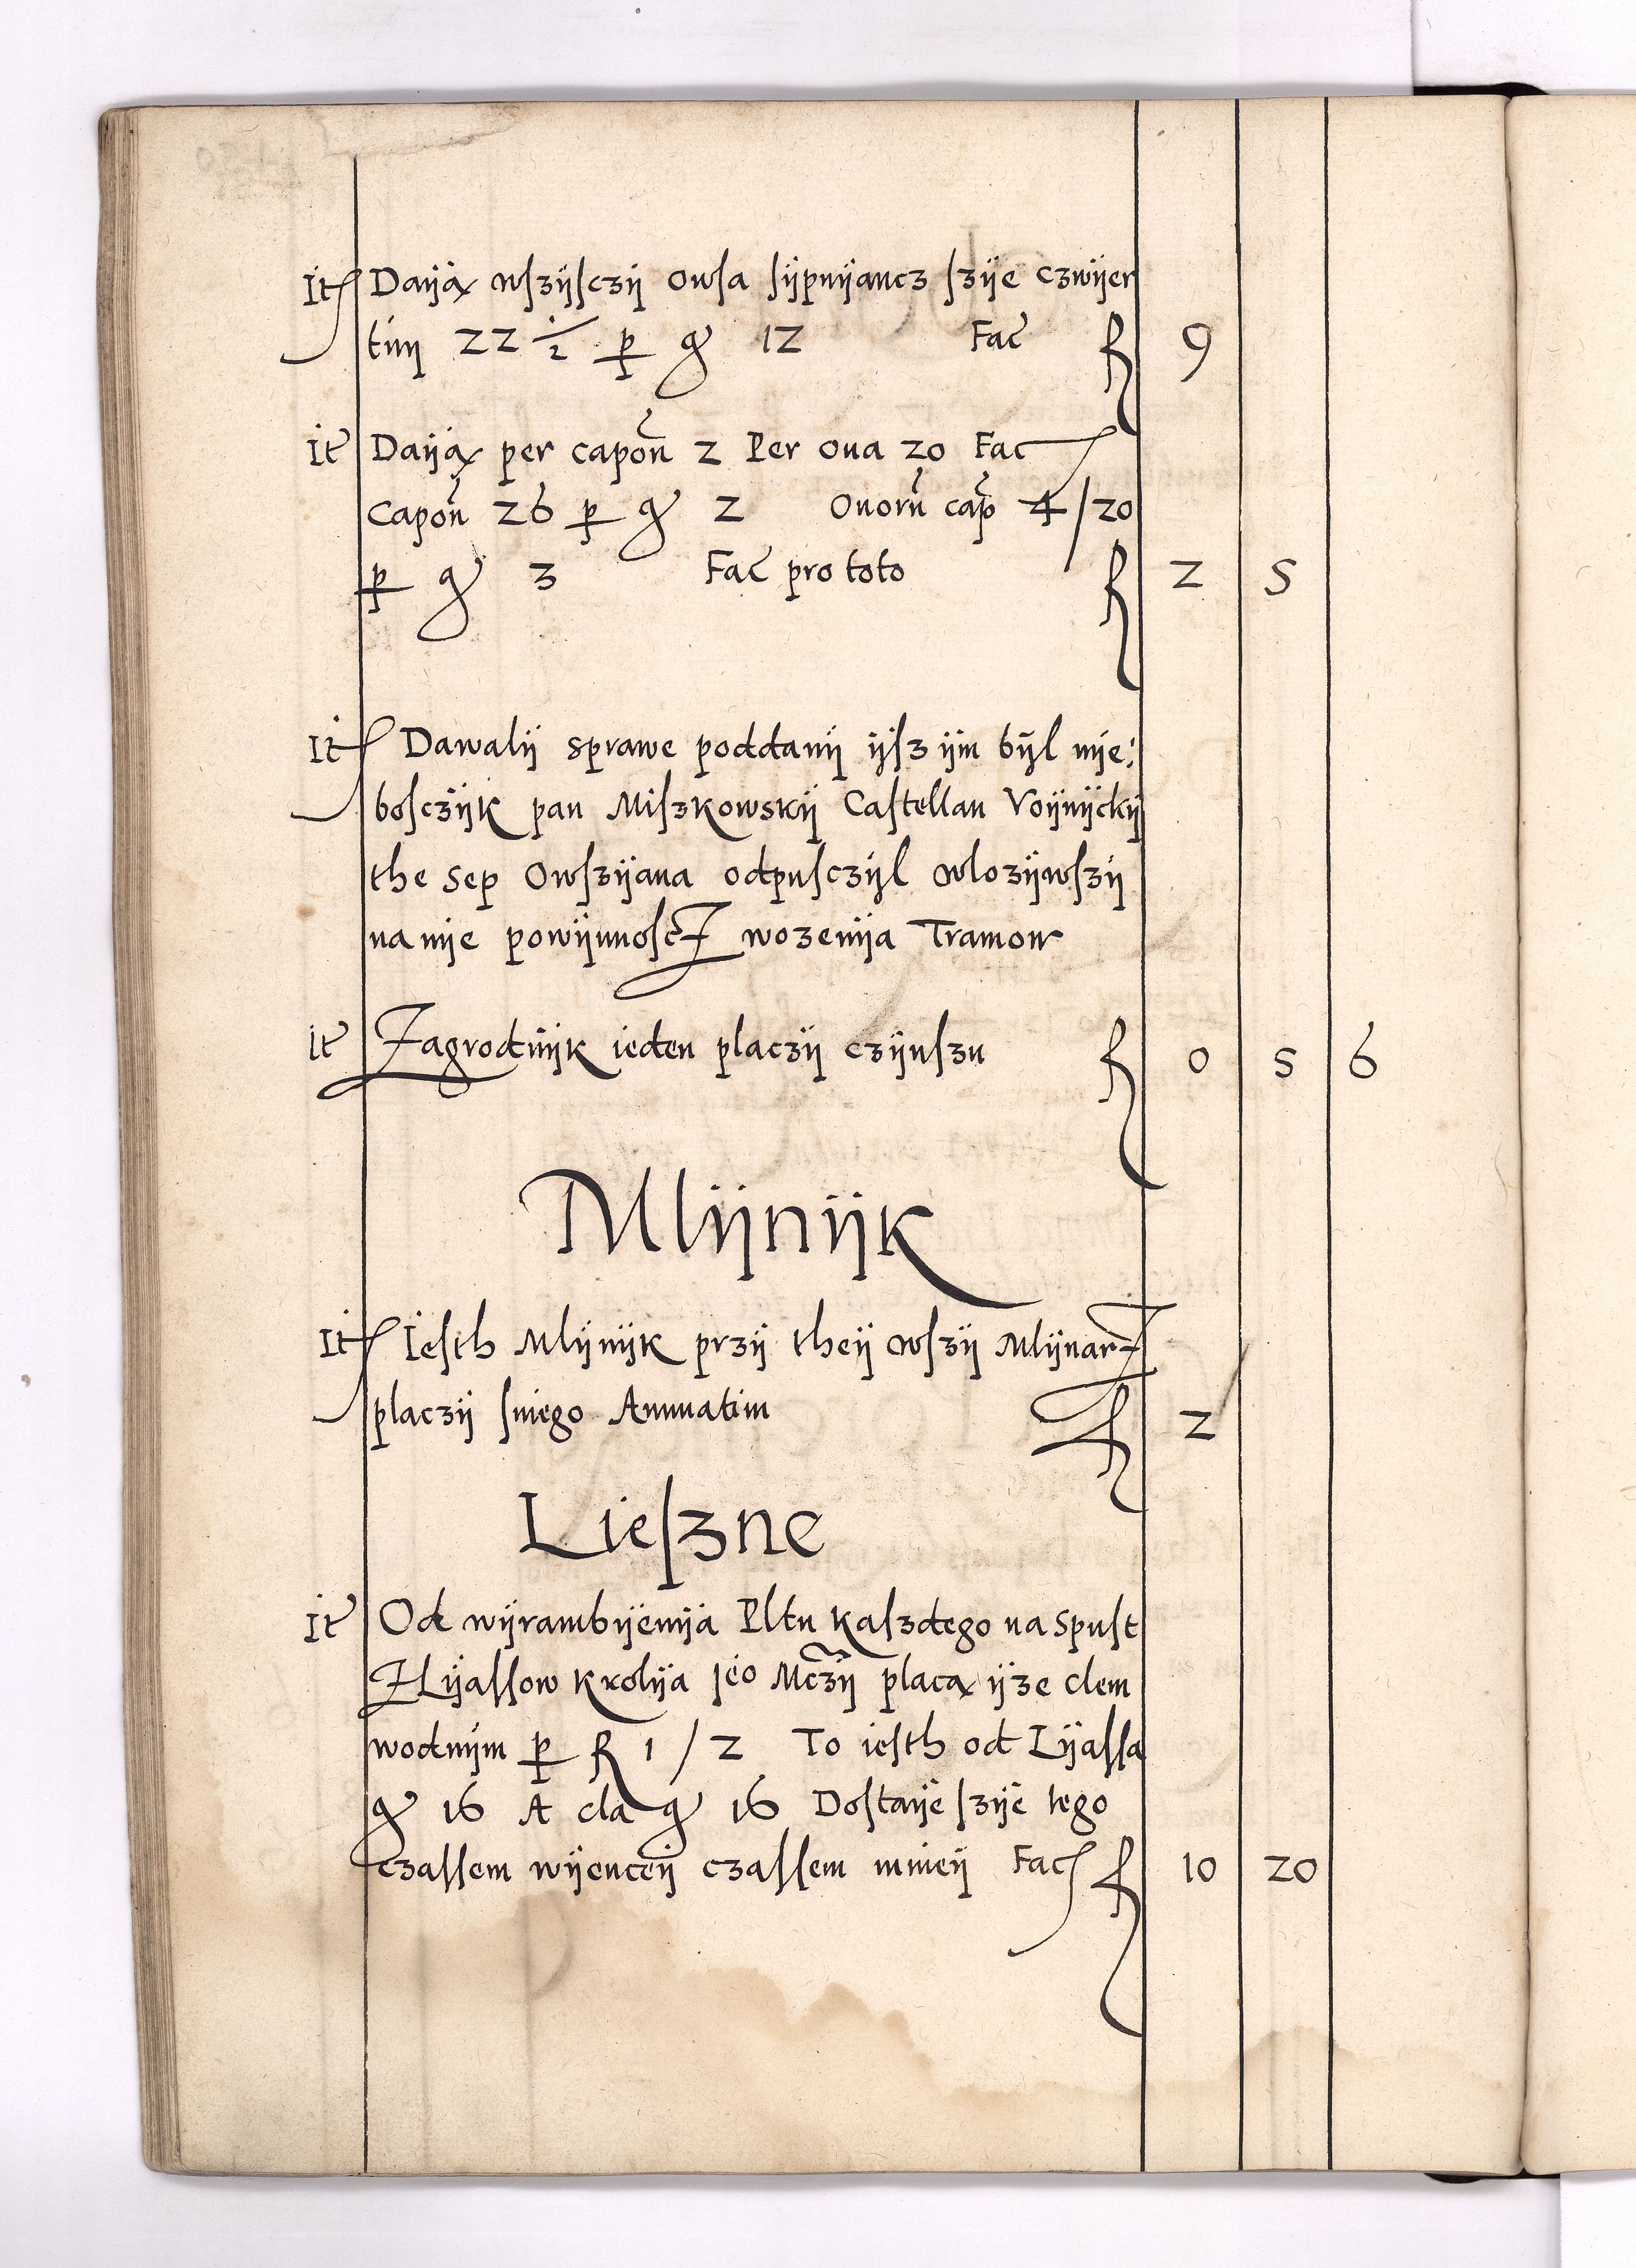 It Dayą wszÿsczÿ owsa sÿpnÿancz szÿe czwÿer
tnÿ 22 1/2 p gr 12 Fac fl 9
It Dayą per capon 2 Per oua 20 Fac
Capon 26 p gr 2 Ouoru cap 4/20
p gr 3 Fac pro toto fl 2 5
It Dawalÿ sprawe poddanÿ ÿsz ÿm bÿl nÿe:
bosczÿk pan Miszkowskÿ Castellan Voÿnÿckÿ
the Sep Owszÿana odpusczÿl wlozÿwszÿ
na nÿe powÿnnoscZ wozenÿa Tramow
It Zagrodnÿk ieden placzÿ czÿnszu fl 0 5 6
Mlÿnÿk
It Iesth Mlÿnÿk przÿ theÿ wszÿ MlÿnarZ
placzÿ sniego Annuatim fl 2
Lieszne
It Od wÿrambÿenÿa Pltu kaszdego na spust
Z Lÿassow krolÿa Jeo Mczÿ placą ÿ ze clem
wodnÿm p fl 1 / 2 To iesth od Lÿassa
gr 16 A cla gr 16 Dostaÿe szÿe tego
czassem wÿenceÿ czassem mnieÿ Fac fl 10 20